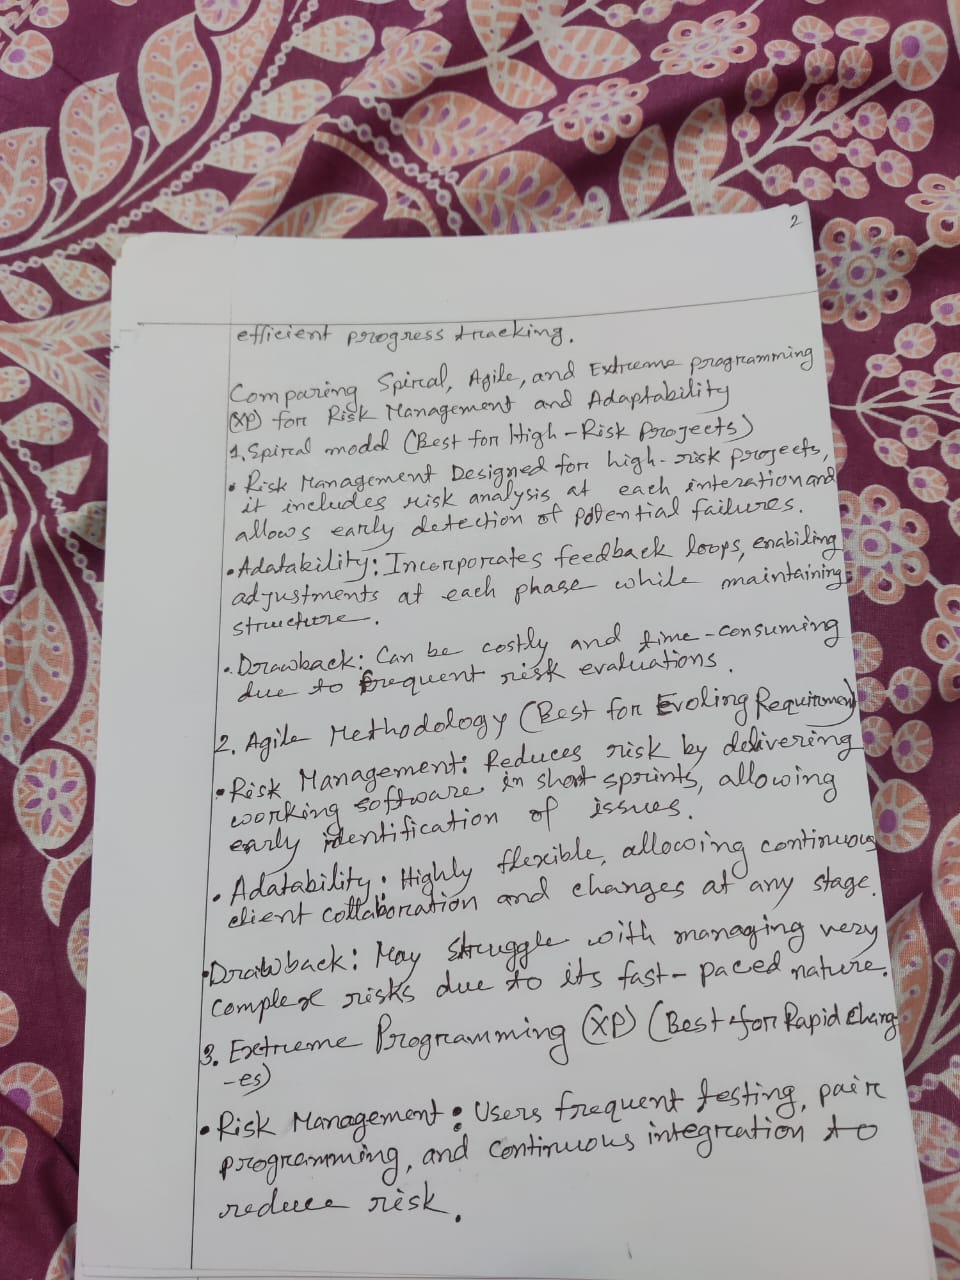 2
efficient progress tracking.
Comparing Spiral, Agile, and Extreme programming
(XP) for Risk Management and Adaptability
1. Spiral model (Best for High-Risk Projects)
• Risk Management Designed for high-risk projects,
it includes risk analysis at each interation and
allows early detection of potential failures.
• Adatability: Incorporates feedback loops, enabiling
adjustments at each phase while maintaining
structure.
• Drawback: Can be costly and time-consuming
due to frequent risk evaluations.
2. Agile Methodology (Best for Evoling Requirement)
• Risk Management: Reduces risk by delivering
working software in short sprints, allowing
early identification of issues.
• Adatability: Highly flexible, allowing continuous
client collaboration and changes at any stage.
• Drawback: May struggle with managing very
complex risks due to its fast-paced nature.
3. Extreme Programming (XP) (Best for Rapid Chang
-es)
• Risk Management: Users frequent testing, pair
programming, and continuous integration to
reduce risk.